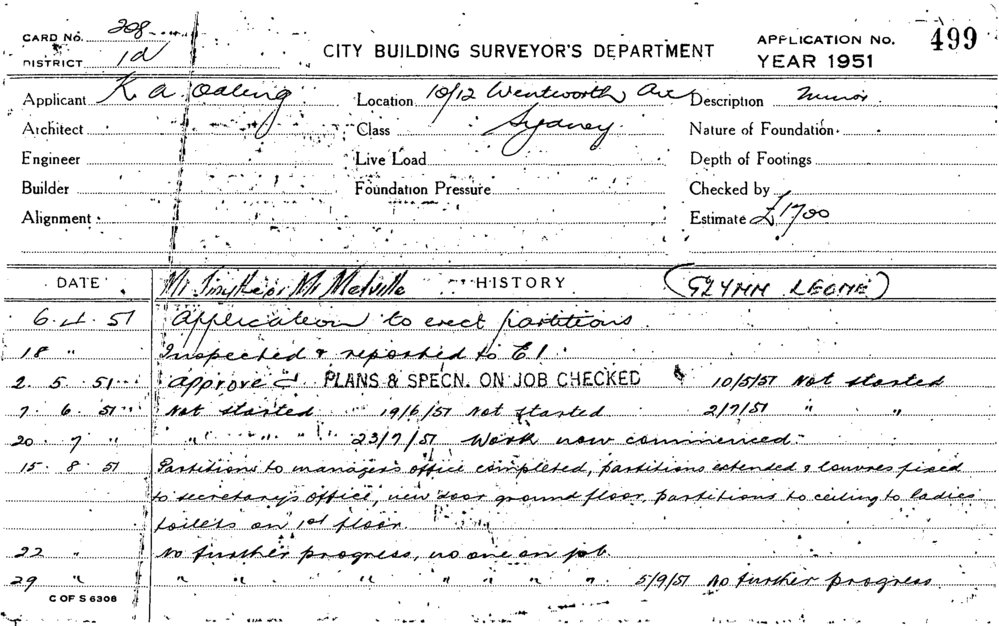 CARD No. 208
DISTRICT 1d
CITY BUILDING SURVEYOR'S DEPARTMENT
APPLICATION No. 499
YEAR 1951
Applicant K A Location 10/12 Wentworth Ave Description Minor
Architect Class Sydney Nature of Foundation
Engineer Live Load Depth of Footings
Builder Foundation Pressure Checked by
Alignment Estimate £1700
DATE Mr Mr Melville HISTORY (GLYNN LEONE)
6. 4. 51 Application to erect partitions
18 " Inspected & reported to E1.
2. 5. 51 Approved PLANS & SPECN. ON JOB CHECKED 10/5/51 Not started
7. 6. 51 Not started 19/6/51 Not started 2/7/51 " "
20. 7 " " " " 23/7/51 Work now commenced
15. 8. 51 Partitions to managers office completed, partitions extended & louvres fixed
to secretary's office, new door ground floor, partitions to ceiling to ladies
toilets on 1st floor.
22 " No further progress, no one on job
29 " " " " " " " " 5/9/51 No further progress
C OF S 6308